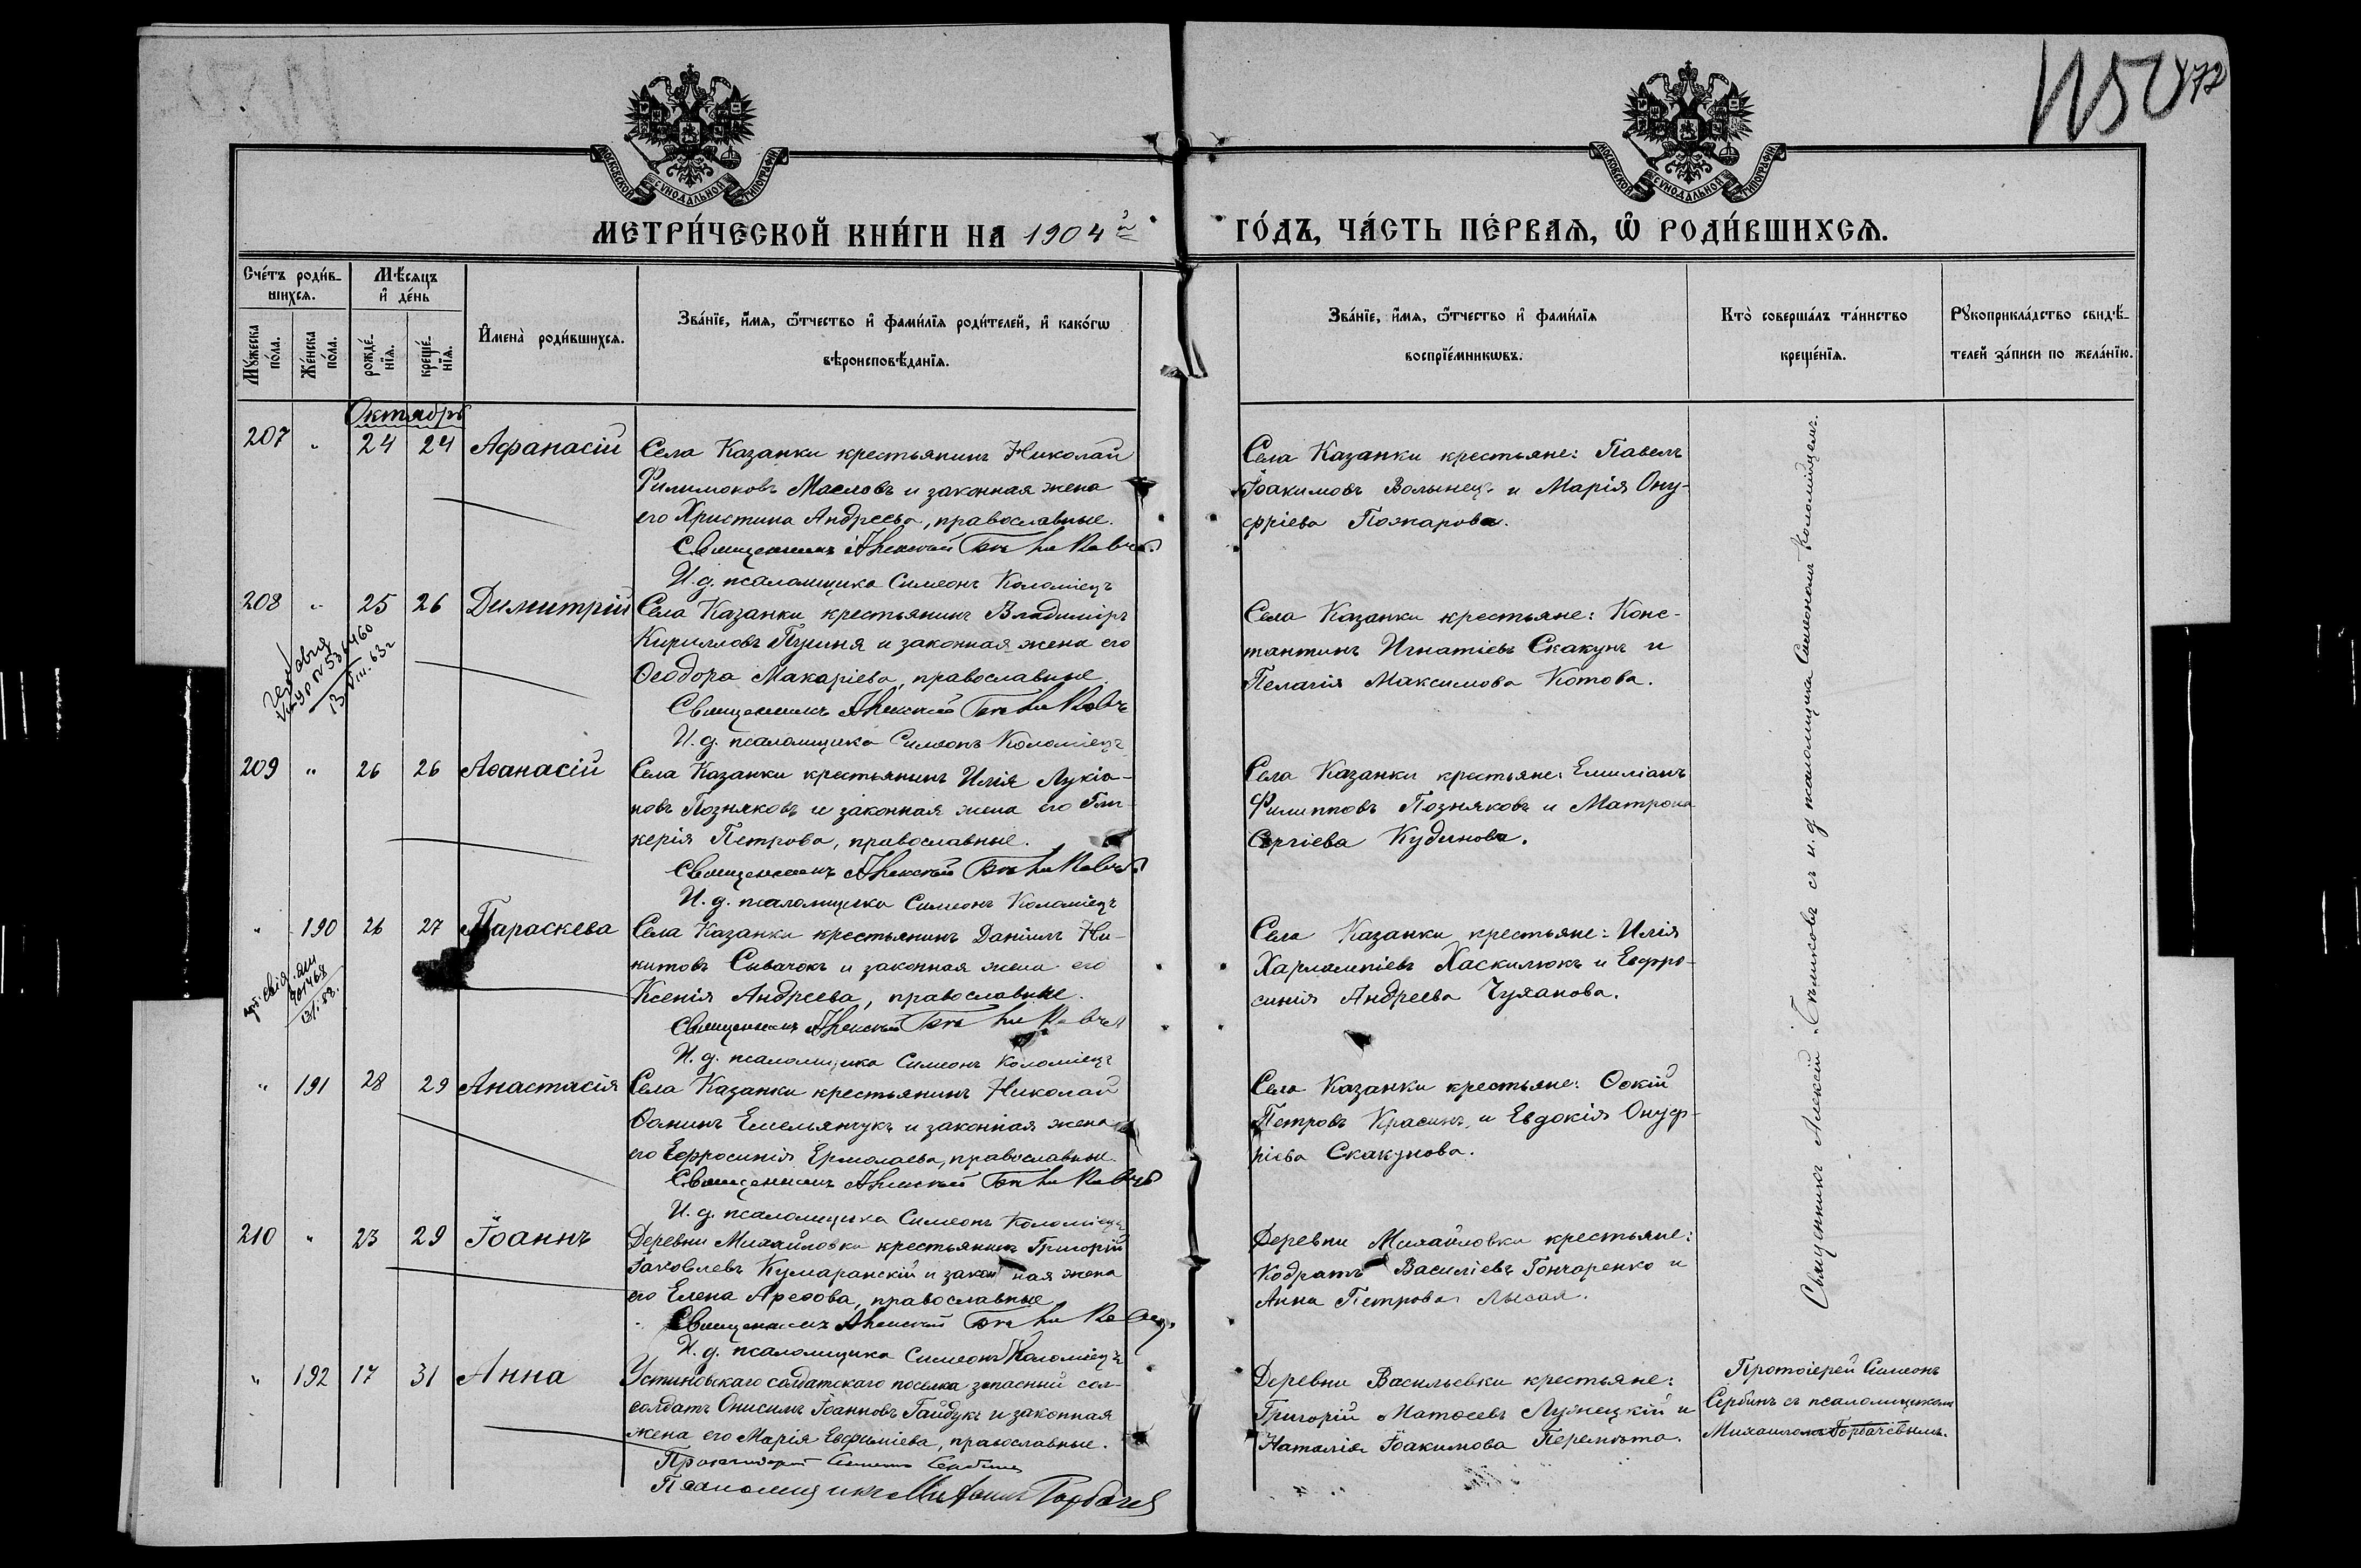 1150 472
МОСКОВСКОЙ СѴНОДАЛЬНОЙ ТИПОГРАФІИ
МОСКОВСКОЙ СѴНОДАЛЬНОЙ ТИПОГРАФІИ
МЕТРИ́ЧЕСКОЙ КНИ́ГИ НА 1904 й
ГО́ДЪ, ЧА́СТЬ ПЕ́РВАѦ, Ѡ РОДИ́ВШИХСѦ.
Сче́тъ роди́в-
шихсѧ.
Мѣ́сѧцъ
и҆ де́нь
Мꙋ́жеска по́ла.
Же́нска по́ла.
рожде́нїѧ.
креще́нїѧ.
И҆мена̀ роди́вшихсѧ.
Зва́нїе, и҆́мѧ, ѻ҆́тчество и҆ фами́лїѧ роди́телей, и҆ како́гѡ
вѣроисповѣ́данїѧ.
Зва́нїе, и҆́мѧ, ѻ҆́тчество и҆ фами́лїѧ
воспрїе́мникѡвъ.
Кто̀ соверша́лъ та́инство
креще́нїѧ.
Рꙋкоприкла́дство свидѣ́-
телей за́писи по жела́нїю.
Октябрь
207 " 24 24 Афанасій
Села Казанки крестьянинъ Николай
Филимоновъ Масловъ и законная жена
его Христина Андреева, православные.
Священникъ Алексій
И. д. псаломщика Симеонъ Коломіецъ
Села Казанки крестьяне: Павелъ
Іоакимовъ Волынец. и Марія Ону-
фріева Пожарова.
208 " 25 26 Димитрій
Села Казанки крестьянинъ Владиміръ
Кирилловъ Пушня и законная жена его
Ѳеодора Макаріева, православные.
Священникъ Алексій
И. д. псаломщика Симеонъ Коломіецъ
Села Казанки крестьяне: Конс-
тантинъ Игнатіевъ Скакунъ и
Пелагія Максимова Котова.
209 " 26 26 Аѳанасій
Села Казанки крестьянинъ Илія Лукіа-
новъ Позняковъ и законная жена его Гли-
керія Петрова, православные.
Священникъ Алексій
И. д. псаломщика Симеонъ Коломіецъ
Села Казанки крестьяне: Емиліанъ
Филипповъ Позняковъ и Матрона
Сергіева Кудинова.
" 190 26 27 Параскева
Села Казанки крестьянинъ Даніилъ Ни-
китовъ Сывачокъ и законная жена его
Ксенія Андреева, православные.
Священникъ Алексій
И. д. псаломщика Симеонъ Коломіецъ
Села Казанки крестьяне: Илія
Харлампіевъ Хаскилюкъ и Евфро-
синія Андреева Чуланова.
" 191 28 29 Анастасія
Села Казанки крестьянинъ Николай
Ѳоминъ Емельянчукъ и законная жена
его Евфросинія Ермолаева, православные.
Священникъ Алексій
И. д. псаломщика Симеонъ Коломіецъ
Села Казанки крестьяне:
Петровъ Красинъ и Евдокія Онуф-
ріева Скакунова.
210 " 23 29 Іоаннъ
Деревни Михайловки крестьянинъ Григорій
Іаковлевъ Кумаранскій и законная жена
его Елена Ареѳова, православные
Священникъ Алексій
И. д. псаломщика Симеонъ Коломіецъ
Деревни Михайловки крестьяне:
Кодратъ Василіевъ Гончаренко и
Анна Петрова Лысая.
" 192 17 31 Анна
Устиновскаго солдатскаго поселка запасный сол-
солдатъ Онисимъ Іоанновъ Гайдукъ и законная
жена его Марія Евфиміева, православные.
Протоіерей Симеонъ Сербинъ
Псаломщикъ Михаилъ Горбачев
Деревни Васильевки крестьяне:
Григорій Матѳеевъ Лужецкій и
Наталія Іоакимова
Протоіерей Симеонъ
Сербинъ съ псаломщикомъ
Михаиломъ Горбачевымъ.
Священникъ Алексій съ и. д. псаломщика Симеономъ Коломійцемъ.